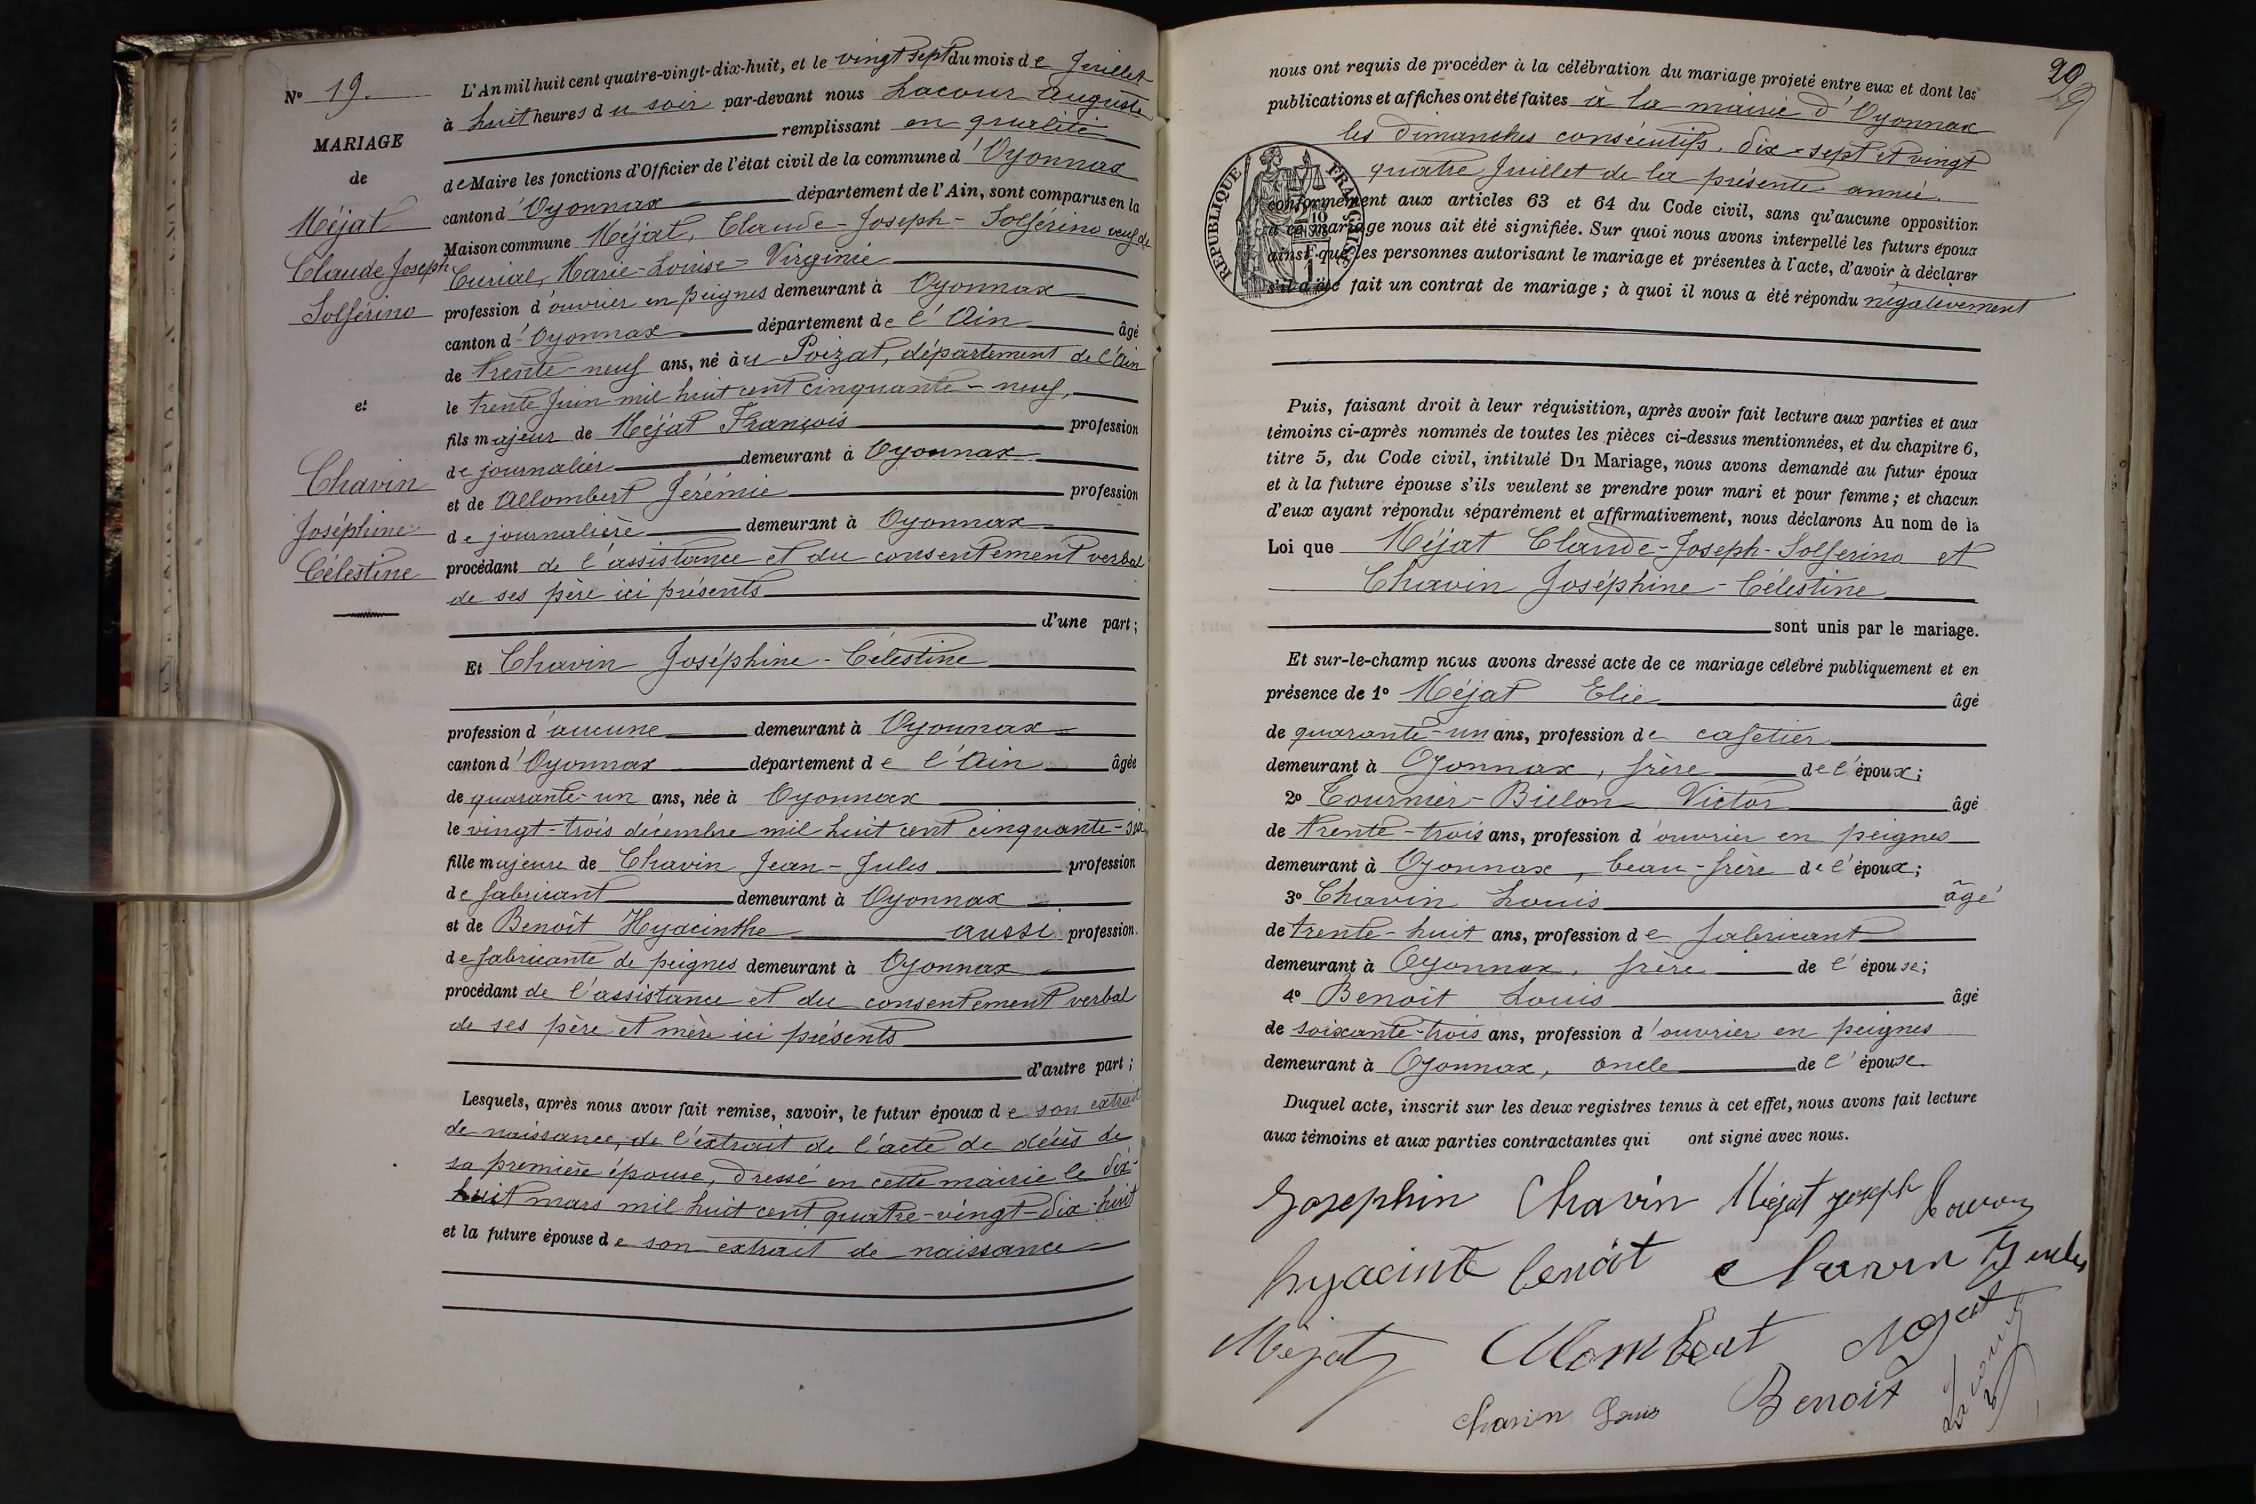 N° 19.
MARIAGE
de
Méjat
Claude Joseph
Solférino
et
Chavin
Joséphine
Célestine
L'An mil huit cent quatre-vingt-dix-huit, et le vingt sept du mois de Juillet
à huit heures du soir par-devant nous Lacour Auguste
remplissant en qualité
de Maire les fonctions d'Officier de l'état civil de la commune d'Oyonnax
canton d'Oyonnax département de l'Ain, sont comparus en la
Maison commune Méjat, Claude-Joseph-Solférino veuf de
Curial, Marie-Louise-Virginie
profession d'ouvrier en peignes demeurant à Oyonnax
canton d'Oyonnax département de l'Ain âgé
de trente-neuf ans, né à u Poizat, département de l'Ain
le trente Juin mil huit cent cinquante-neuf,
fils majeur de Méjat François profession
de journalier demeurant à Oyonnax
et de Allombert Jérémie profession
de journalière demeurant à Oyonnax
procédant de l'assistance et du consentement verbal
de ses père ici présents
d'une part;
Et Chavin Joséphine-Célestine
profession d'aucune demeurant à Oyonnax
canton d'Oyonnax département de l'Ain âgée
de quarante-un ans, née à Oyonnax
le vingt-trois décembre mil huit cent cinquante-six
fille majeure de Chavin Jean-Jules profession
de fabricant demeurant à Oyonnax
et de Benoît Hyacinthe aussi profession
de fabricante de peignes demeurant à Oyonnax
procédant de l'assistance et du consentement verbal
de ses père et mère ici présents
d'autre part;
Lesquels, après nous avoir fait remise, savoir, le futur époux de son extrait
de naissance, de l'extrait de l'acte de décès de
sa première épouse, dressé en cette mairie le dix-
huit mars mil huit cent quatre-vingt-dix-huit
et la future épouse de son extrait de naissance
20
nous ont requis de procéder à la célébration du mariage projeté entre eux et dont les
publications et affiches ont été faites à la mairie d'Oyonnax
les dimanches consécutifs, dix-sept et vingt
quatre Juillet de la présente année.
RÉPUBLIQUE FRANÇAISE
conformément aux articles 63 et 64 du Code civil, sans qu'aucune opposition
à ce mariage nous ait été signifiée. Sur quoi nous avons interpellé les futurs époux
ainsi que les personnes autorisant le mariage et présentes à l'acte, d'avoir à déclarer
s'il a été fait un contrat de mariage; à quoi il nous a été répondu négativement
Puis, faisant droit à leur réquisition, après avoir fait lecture aux parties et aux
témoins ci-après nommés de toutes les pièces ci-dessus mentionnées, et du chapitre 6,
titre 5, du Code civil, intitulé Du Mariage, nous avons demandé au futur époux
et à la future épouse s'ils veulent se prendre pour mari et pour femme; et chacun
d'eux ayant répondu séparément et affirmativement, nous déclarons Au nom de la
Loi que Méjat Claude-Joseph-Solférino et
Chavin Joséphine-Célestine
sont unis par le mariage.
Et sur-le-champ nous avons dressé acte de ce mariage célébré publiquement et en
présence de 1° Méjat Elie âgé
de quarante-un ans, profession de cafetier
demeurant à Oyonnax, frère de l'époux;
2° Tournier-Billon Victor âgé
de trente-trois ans, profession d'ouvrier en peignes
demeurant à Oyonnax, beau-frère de l'époux;
3° Chavin Louis âgé
de trente-huit ans, profession de fabricant
demeurant à Oyonnax, frère de l'épouse;
4° Benoit Louis âgé
de soixante-trois ans, profession d'ouvrier en peignes
demeurant à Oyonnax, oncle de l'épouse.
Duquel acte, inscrit sur les deux registres tenus à cet effet, nous avons fait lecture
aux témoins et aux parties contractantes qui ont signé avec nous.
Josephin Chavin Méjat Joseph
hyacinte benoit Chavin Jules
Méjat Allombert Méjat
Chavin Louis Benoit Lacour